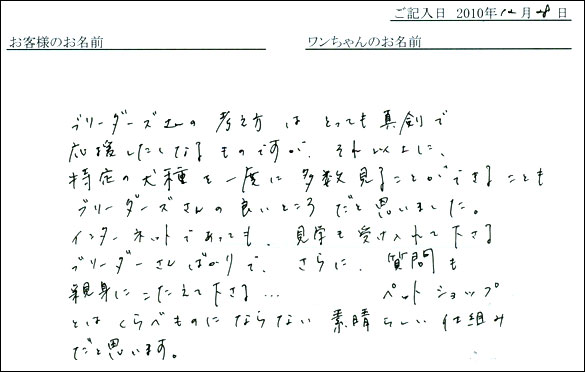 ご記入日 2010年12月28日
お客様のお名前 ワンちゃんのお名前
ブリーダーズさんの考え方はとっても真剣で
応援したくなるものですが、それ以上に、
特定の犬種を一度に多数見ることができることも
ブリーダーズさんの良いところだと思いました。
インターネットであっても、見学も受け入れて下さる
ブリーダーさんばかりで、さらに、質問も
親身にこたえて下さる… ペットショップ
とはくらべものにならない素晴らしい仕組み
だと思います。